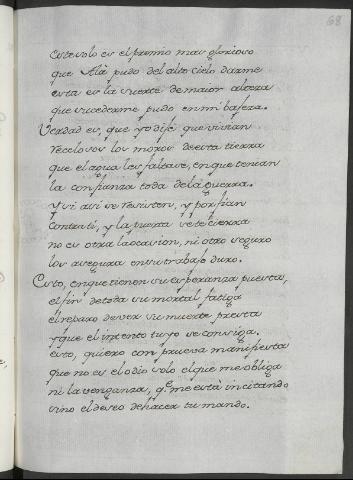 68
este solo es el premio mas glorioso
que Alà pudo del alto cielo darme
esta es la suerte de maior alteza
que sucederme pudo en mi bajeza.
Verdad es, que yo dije que vivian
recelosos los moros de esta tierra
que el agua les faltase, en que tenian
la confianza toda de la guerra.
Y si asi se resisten, y porfian
contra ti, y la puerta se te cierra
no es otra la ocasion, ni otro seguro
los asegura en su trabajo duro.
Esto, en que tienen su esperanza puesta,
el fin de toda su mortal fatiga
el reparo de ver su muerte presta
y que el intento tuyo se consiga.
esto, quiero con prueva manifiesta
que no es el odio solo el que me obliga
ni la venganza, q.e me està incitando
sino el deseo de hacer tu mando.